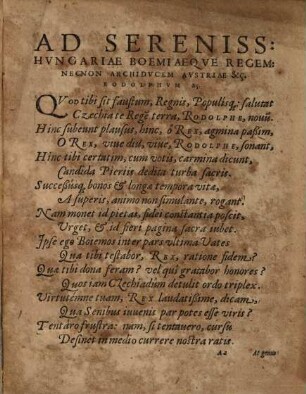 AD SERENISS:
HVNGARIAE BOEMIAEQVE REGEM:
NECNON ARCHIDVCEM AVSTRIAE &c.
RODOLPHVM &c.
QVod tibi sit faustum, Regnis, Populisq́; salutat
CZechia te Regẽ terra, RODOLPHE, nouũ.
Hinc subeunt plausus, hinc, ô REX, agmina paßim,
O REX, viue diu, viue, RODOLPHE, sonant,
Hinc tibi certatim, cum votis, carmina dicunt,
Candida Pieriis dedita turba sacris.
Successusq́; bonos & longa tempora vitæ,
A superis, animo non simulante, rogant.
Nam monet id pietas, fidei constantia poscit,
Vrget, & id fieri pagina sacra iubet.
Ipse ego Boiemos inter pars vltima Vates
Qua tibi testabor, REX, ratione fidem?
Quæ tibi dona feram? vel qui gratabor honores?
Quos iam CZechiadum detulit ordo triplex.
Virtutémne tuam, REX laudatissime, dicam,
Qua Senibus iuuenis par potes esse viris?
Tentâro frustra: nam, si tentauero, cursu
Desinet in medio currere nostra ratis.
A2
At genus